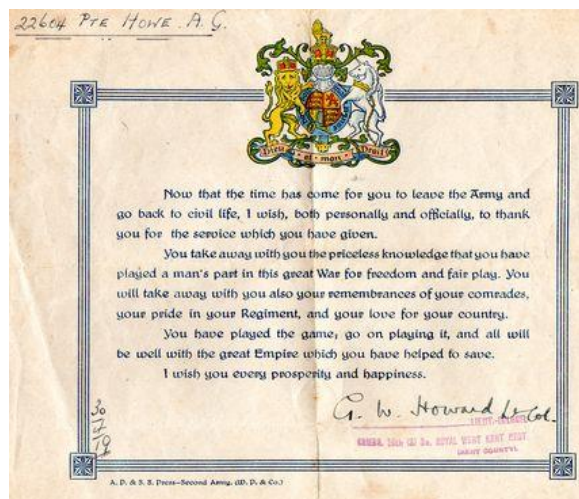 22604 PTE HOWE. A. G.
Dieu et mon Droit
Now that the time has come for you to leave the Army and
go back to civil life, I wish, both personally and officially, to thank
you for the service which you have given.
You take away with you the priceless knowledge that you have
played a man's part in this great War for freedom and fair play. You
will take away with you also your remembrances of your comrades,
your pride in your Regiment, and your love for your country.
You have played the game; go on playing it, and all will
be well with the great Empire which you have helped to save.
I wish you every prosperity and happiness.
G. W. Howard Lt Col.
LIEUT-COLONEL
ROYAL WEST KENT REGT.
(KENT COUNTY).
30
7
19
A. P. & S. S. Press—Second Army. (W. P. & Co.)